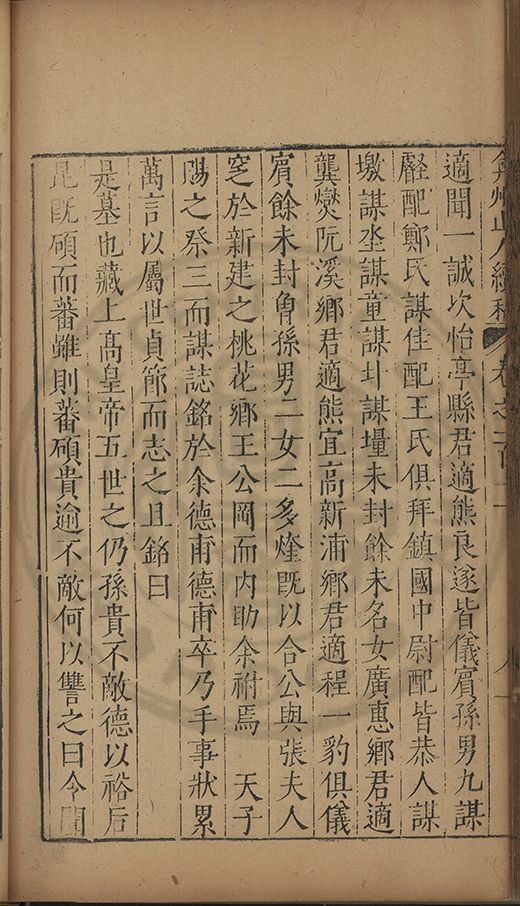 弇州山人續稿 卷之一百十
適聞一誠次怡亭縣君適熊良遂皆儀賓孫男九謀
𡒄配鄭氏謀佳配王氏俱拜鎮國中尉配皆恭人謀
墩謀坐謀童謀圤謀㙓未封餘未名女廣惠鄉君適
龔爕阮溪鄉君適熊宜高新浦鄉君適程一豹俱儀
賓餘未封曾孫男二女二多煃既以合公與張夫人
窆於新建之桃花鄉王公岡而內助余祔焉 天子
賜之祭三而謀誌銘於余德甫德甫卒乃手事狀累
萬言以屬世貞節而志之且銘曰
是墓也藏上高皇帝五世之仍孫貴不敵德以裕后
昆既碩而蕃雖則蕃碩貴逾不敵何以讐之曰令聞